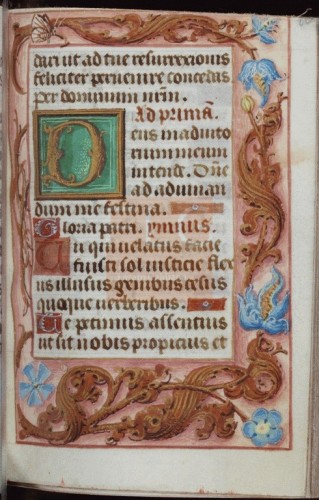 dari ut ad tue resurrexionis
feliciter peruenire concedas
per dominum nr̄m.
Ad primā.
Deus in adiuto
rium meum
intende. Dn̄e
ad adiuuan
dum me festina.
Gloria patri. ymnus.
Tu qui uelatus facie
fuisti sol iusticie flex
us illusus genibus cesus
quoque uerberibus.
Te petimus assentius
ut sit nobis propicius et